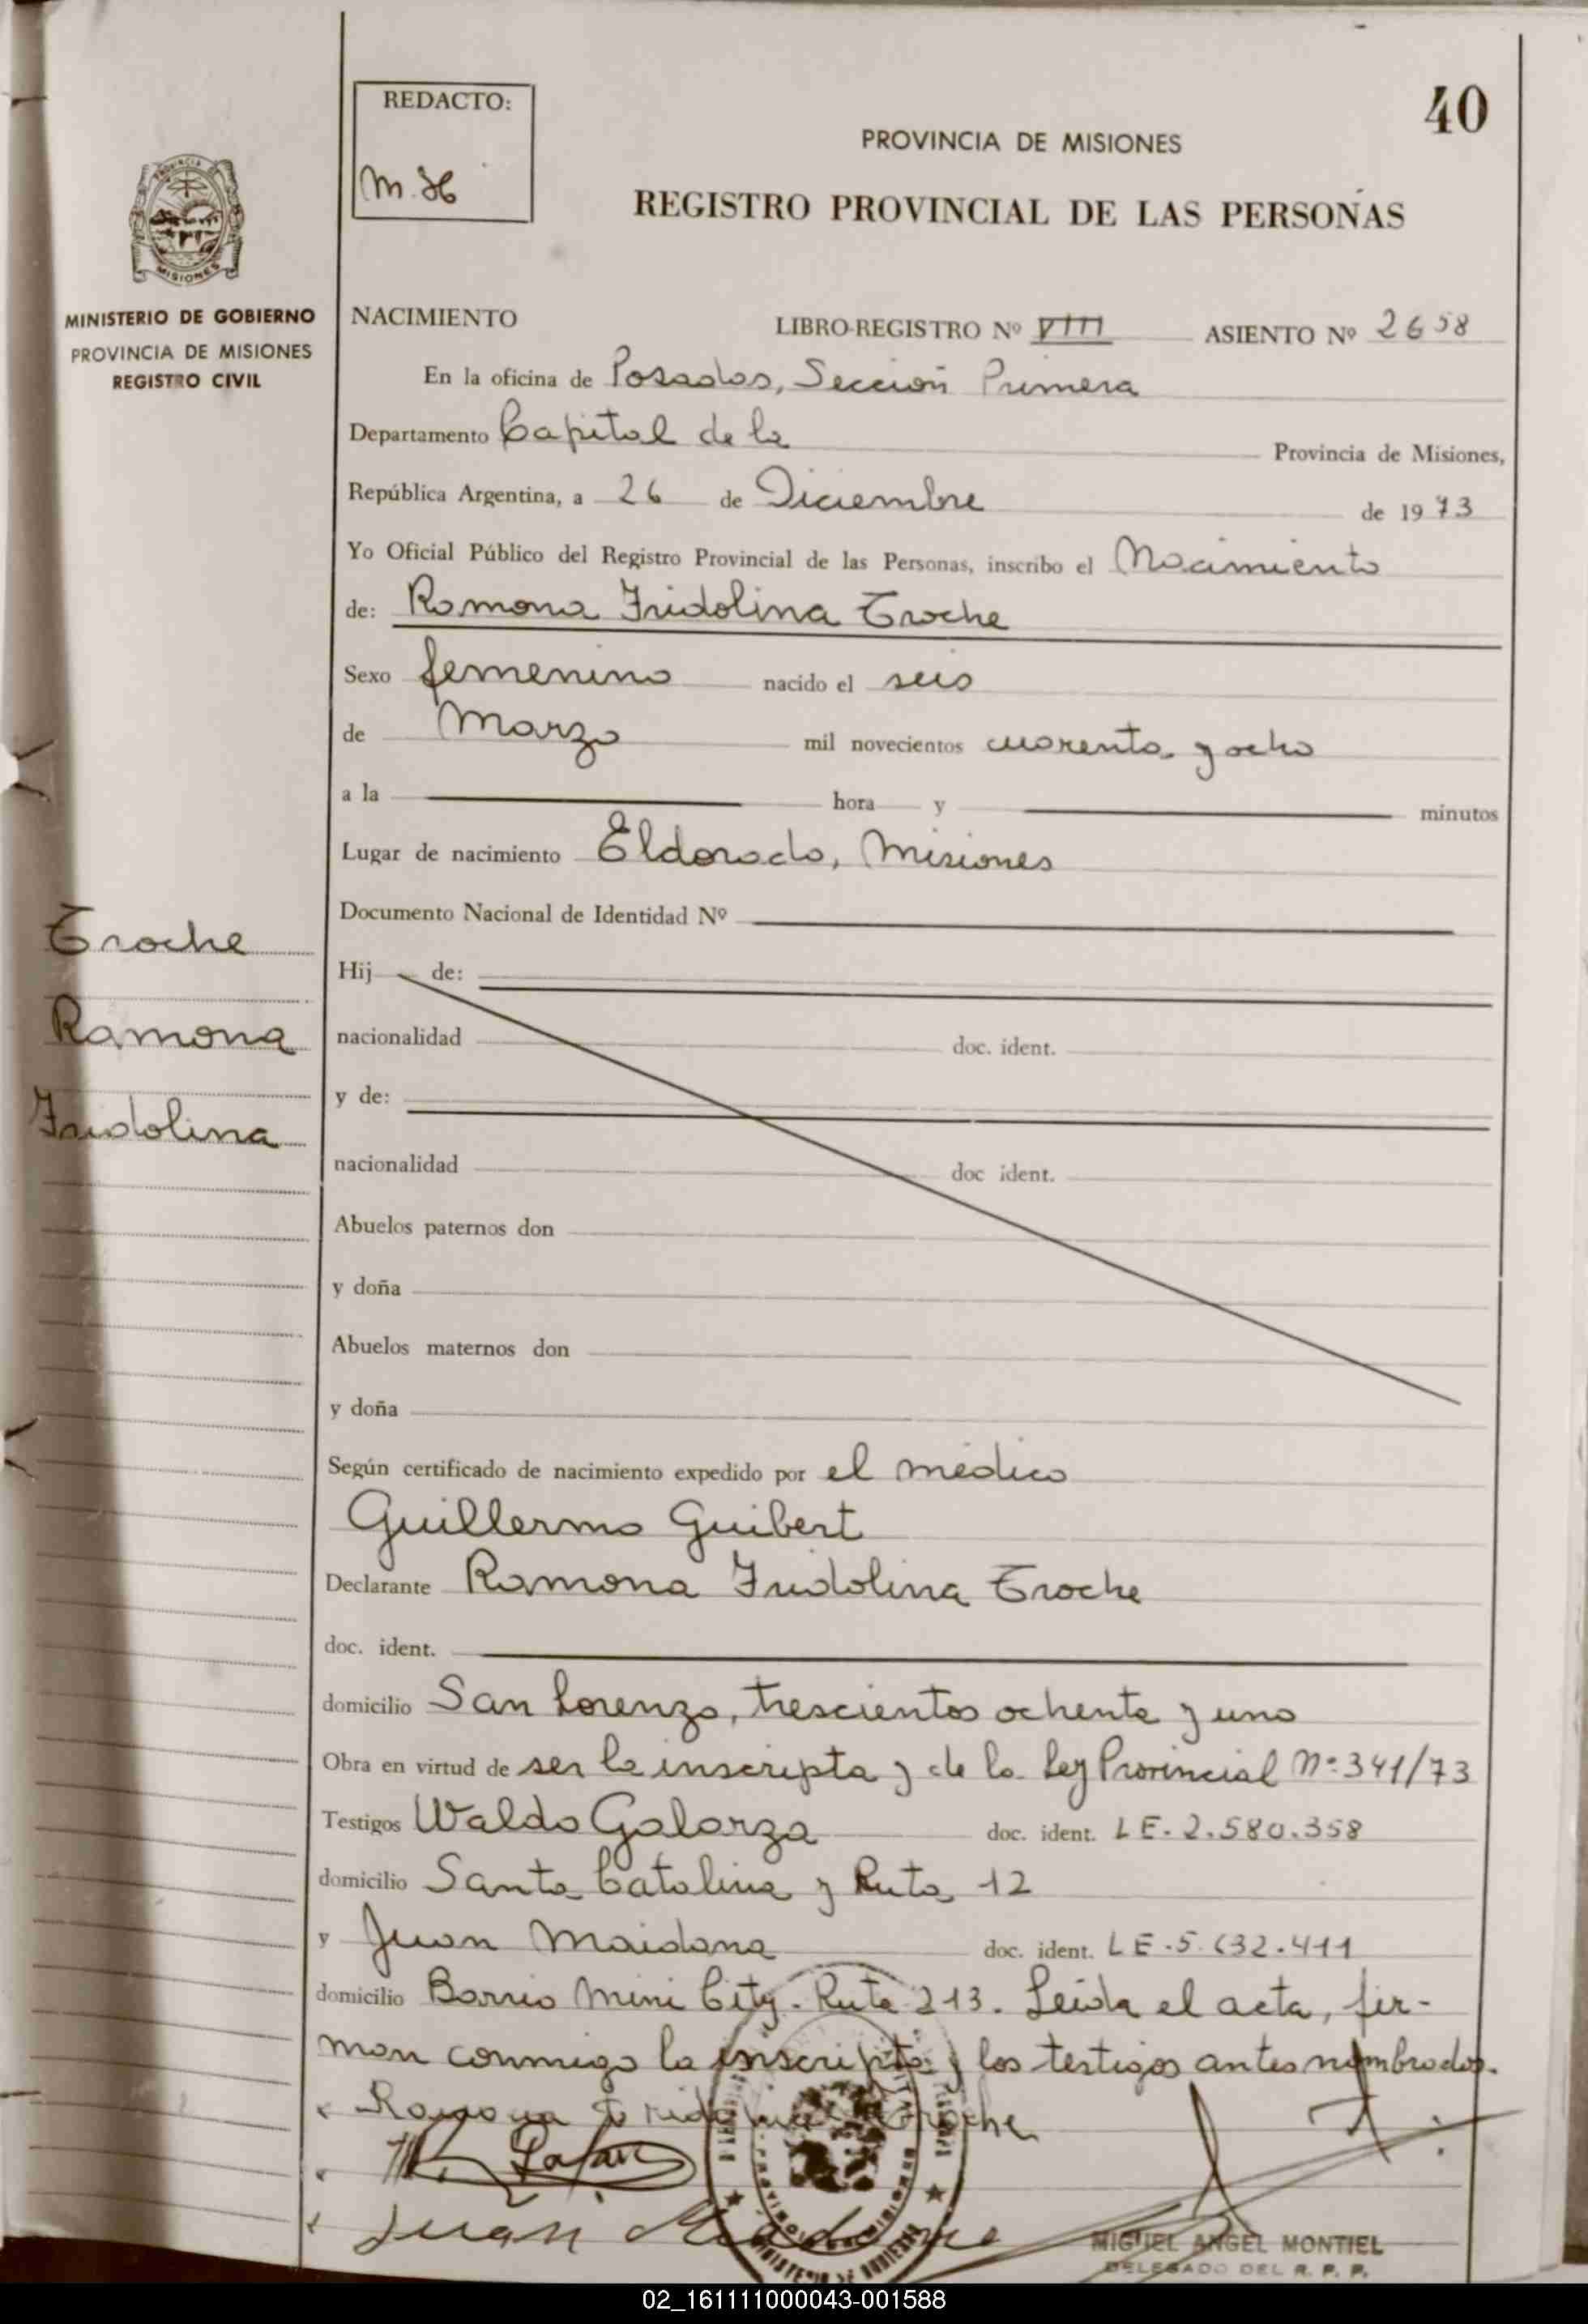 40
REDACTO:
PROVINCIA DE MISIONES
REGISTRO PROVINCIAL DE LAS PERSONAS
PROVINCIA
MISIONES
MINISTERIO DE GOBIERNO
PROVINCIA DE MISIONES
REGISTRO CIVIL
NACIMIENTO LIBRO-REGISTRO Nº VIII ASIENTO Nº 2658
En la oficina de Posadas, Sección Primera
Departamento Capital de la Provincia de Misiones,
República Argentina, a 26 de Diciembre de 1973
Yo Oficial Público del Registro Provincial de las Personas, inscribo el Nacimiento
de: Ramona Fridolina Troche
Sexo femenino nacido el seis
de Marzo mil novecientos cuarenta y ocho
a la hora y minutos
Lugar de nacimiento Eldorado, Misiones
Documento Nacional de Identidad Nº
Troche
Ramona
Fridolina
Hij de:
nacionalidad doc. ident.
y de:
nacionalidad doc ident.
Abuelos paternos don
y doña
Abuelos maternos don
y doña
Según certificado de nacimiento expedido por el médico
Guillermo Guibert
Declarante Ramona Fridolina Troche
doc. ident.
domicilio San Lorenzo, trescientos ochenta y uno
Obra en virtud de ser la inscripta y de la Ley Provincial Nº 341/73
Testigos Waldo Galarza doc. ident. LE. 2.580.358
domicilio Santa Catalina y Ruta 12
y Juan Maidana doc. ident. LE. 5.632.411
domicilio Barrio Mini City - Ruta 213. Leída el acta, fir-
man conmigo la inscripta y los testigos antes nombrados.
Ramona Fridolina Troche
Juan Maidana
MIGUEL ANGEL MONTIEL
DELEGADO DEL R. P. P.
02_161111000043-001588